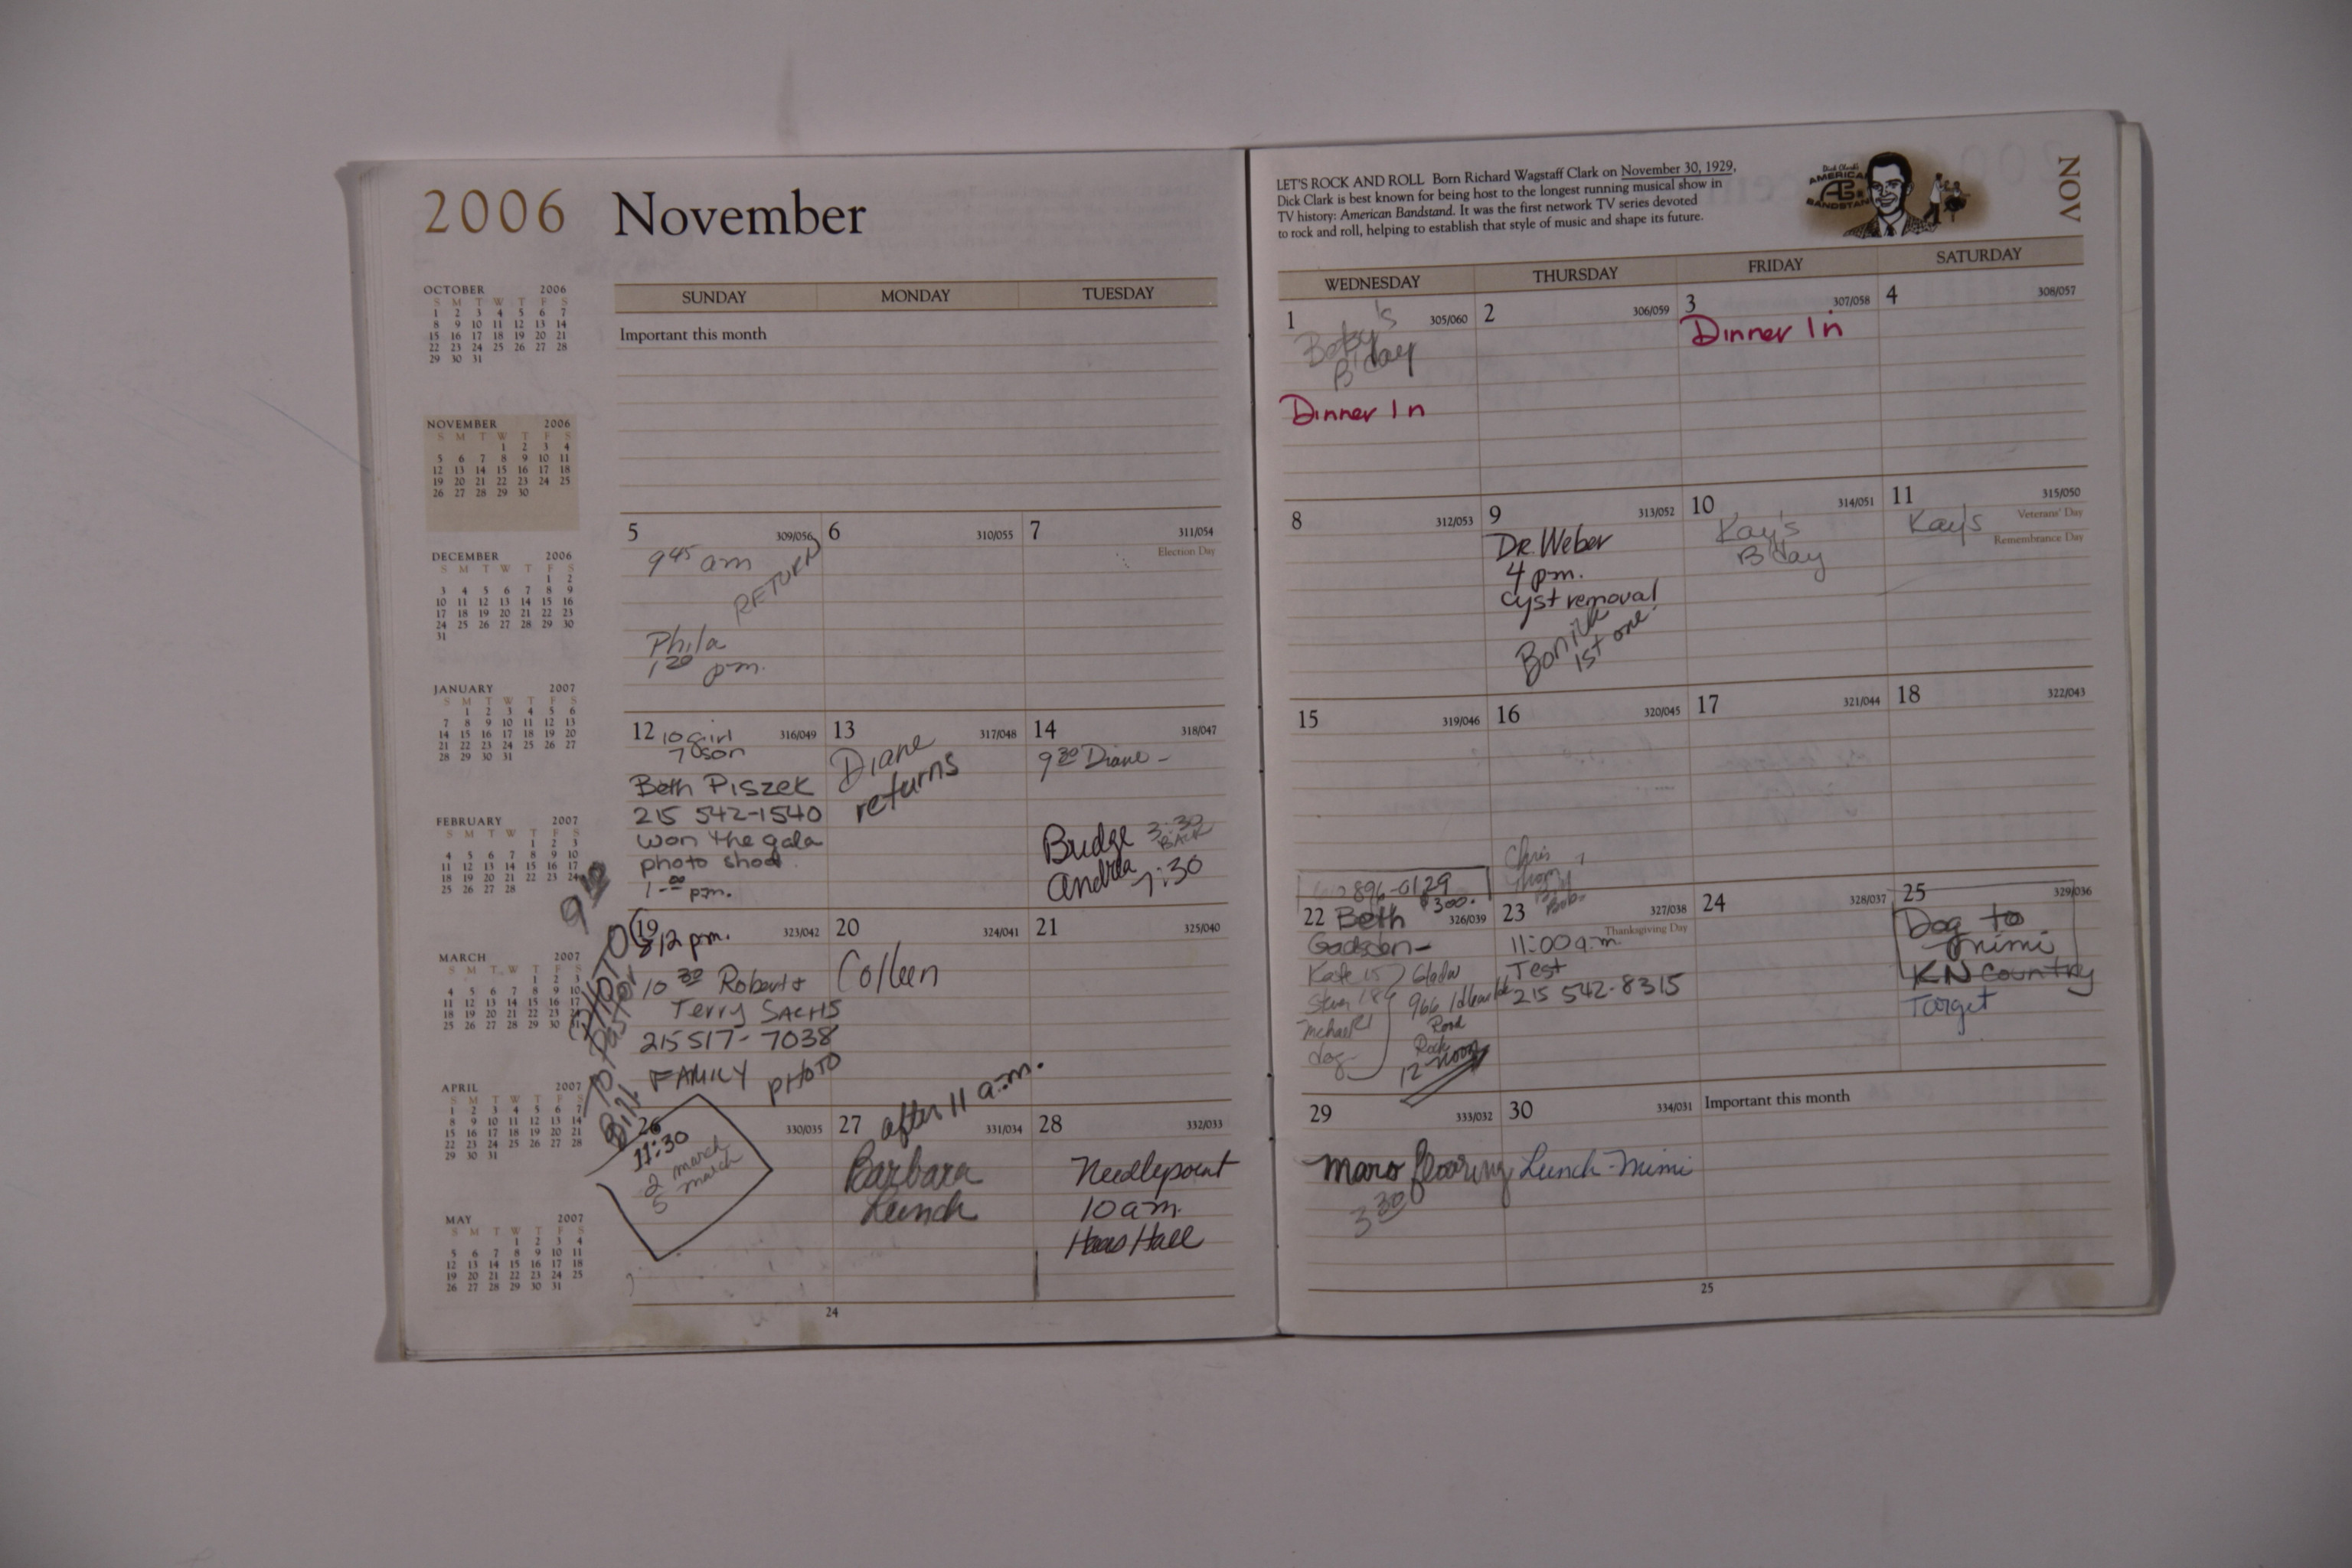 2006 November
OCTOBER 2006
S M T W T F S
1 2 3 4 5 6 7
8 9 10 11 12 13 14
15 16 17 18 19 20 21
22 23 24 25 26 27 28
29 30 31
NOVEMBER 2006
S M T W T F S
1 2 3 4
5 6 7 8 9 10 11
12 13 14 15 16 17 18
19 20 21 22 23 24 25
26 27 28 29 30
DECEMBER 2006
S M T W T F S
1 2
3 4 5 6 7 8 9
10 11 12 13 14 15 16
17 18 19 20 21 22 23
24 25 26 27 28 29 30
31
JANUARY 2007
S M T W T F S
1 2 3 4 5 6
7 8 9 10 11 12 13
14 15 16 17 18 19 20
21 22 23 24 25 26 27
28 29 30 31
FEBRUARY 2007
S M T W T F S
1 2 3
4 5 6 7 8 9 10
11 12 13 14 15 16 17
18 19 20 21 22 23 24
25 26 27 28
MARCH 2007
S M T W T F S
1 2 3
4 5 6 7 8 9 10
11 12 13 14 15 16 17
18 19 20 21 22 23 24
25 26 27 28 29 30 31
APRIL 2007
S M T W T F S
1 2 3 4 5 6 7
8 9 10 11 12 13 14
15 16 17 18 19 20 21
22 23 24 25 26 27 28
29 30
MAY 2007
S M T W T F S
1 2 3 4 5
6 7 8 9 10 11 12
13 14 15 16 17 18 19
20 21 22 23 24 25 26
27 28 29 30 31
SUNDAY MONDAY TUESDAY
Important this month
5 309/056
9 45 am
RETURN
Phila
1 20
pm.
6 310/055
7 311/054
Election Day
12 316/049
10 girl
7 son
Beth Piszek
215 542-1540
won the gala
photo shoot
1-00 pm.
13 317/048
Diane
returns
14 318/047
9 30 Diane -
Budge 3:30
BACK
Andrea 7:30
PHOTO
TO Pastor
Bill
19 323/042
812 pm.
10 30 Robert +
Terry SACHS
215 517-7038
FAMILY PHOTO
20 324/041
Colleen
21 325/040
26 330/035
11:30
2 march
5 march
27 331/034
after 11 a.m.
Barbara
Lunch
28 332/033
Needlepoint
10 am.
Haas Hall
24
LET'S ROCK AND ROLL Born Richard Wagstaff Clark on November 30, 1929,
Dick Clark is best known for being host to the longest running musical show in
TV history: American Bandstand. It was the first network TV series devoted
to rock and roll, helping to establish that style of music and shape its future.
Dick Clark's
AMERICAN
AB
BANDSTAND
NOV
WEDNESDAY THURSDAY FRIDAY SATURDAY
1 305/060
B'day
Dinner In
2 306/059
3 307/058
Dinner In
4 308/057
8 312/053
9 313/052
Dr. Weber
4 pm.
cyst removal
1st one
10 314/051
Kay's
B'day
11 315/050
Veterans' Day
Remembrance Day
Kay's
15 319/046
16 320/045
17 321/044
18 322/043
896-0129
$300.
22 326/039
Beth
Gadsden-
Kate 15
Steven 18
Michael
dog
966
Road
12-noon
Chris
Bob
23 327/038
Thanksgiving Day
11:00 a.m.
Test
215 542-8315
24 328/037
25 329/036
Dog to
mimi
KN Country
Target
29 333/032
flooring
3 30
30 334/031
Lunch-Mimi
Important this month
25